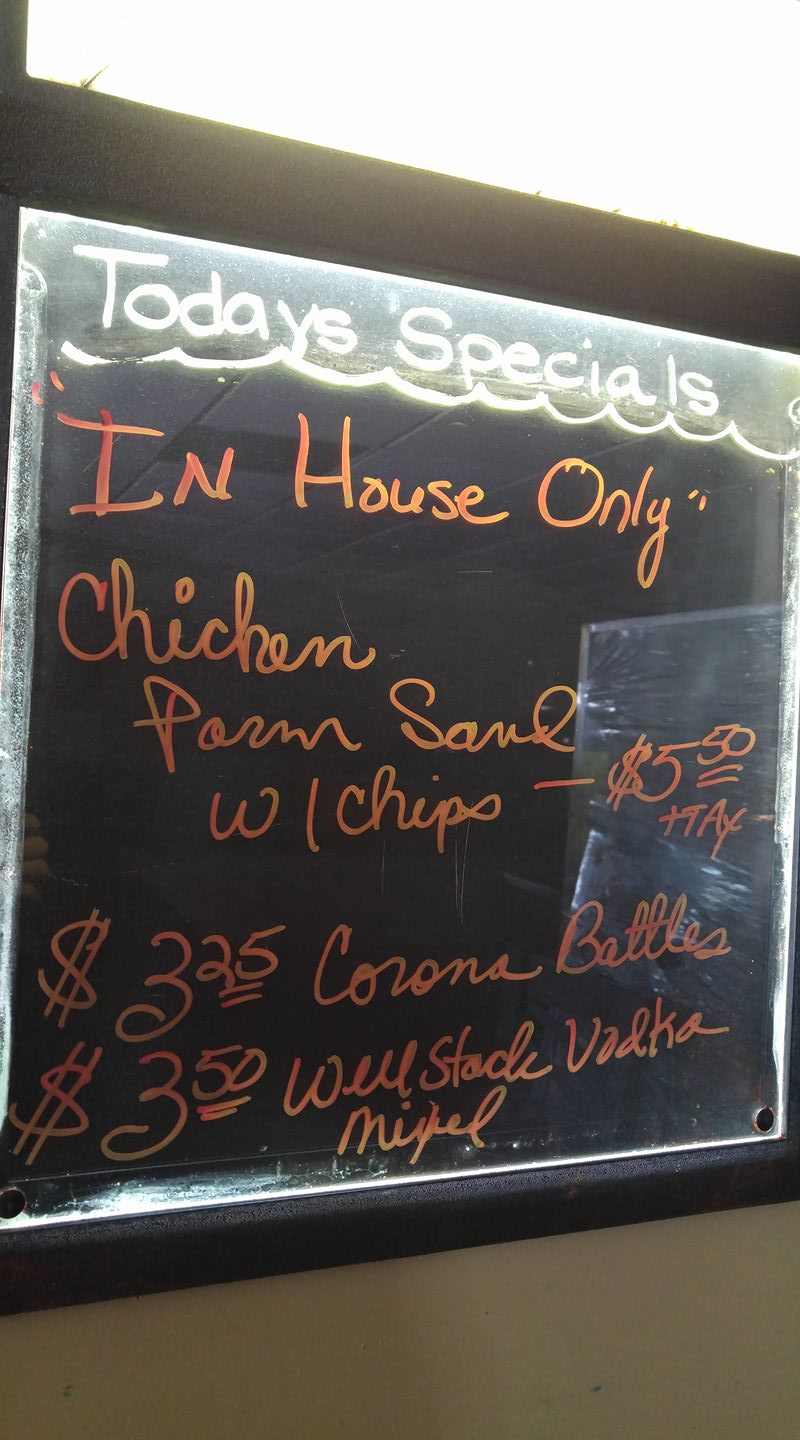 Todays Specials
"IN House Only"
Chicken
Parm Sand
w/chips - $5 50
+TAX
$3 25 Corona Bottles
$3 50 Well Stack Vodka
Mixed